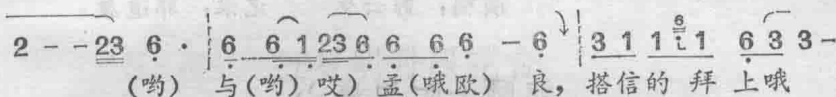 2 - - 23 6 · 6 6 1 23 6 6 6 6 - 6 3 1 1 6 i 1 6 3 3 -
(哟) 与(哟) 哎) 孟(哦欧) 良, 搭信的 拜 上哦